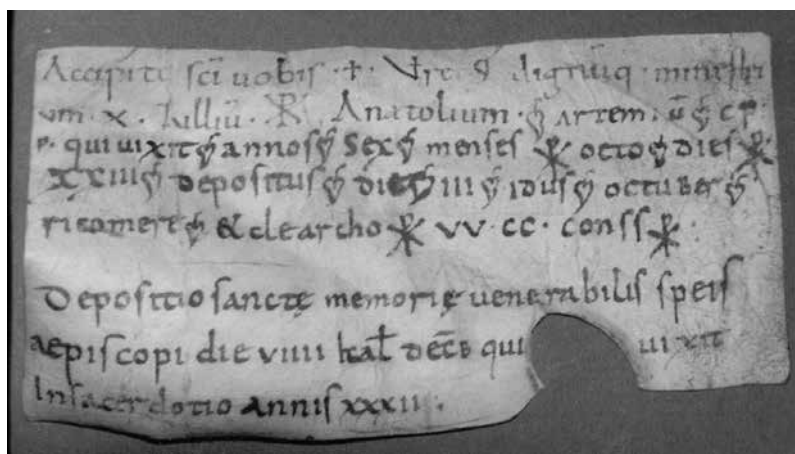 Accipite sci uobis · ☩ · Vrē dignūq · ministri
um · x · Iulliū · ☧ Anatolium · artem · ū
p · qui uixit annos sex menses ☧ octo dies ☧
XXIII depositus die III idus octuber
ricomere & clearcho ☧ VV · CC · conss ☧
Depositio sancte memorię uenerabilis speis
aepiscopi die VIIII kal decēb qui uixit
In sacerdotio annis XXXII ·